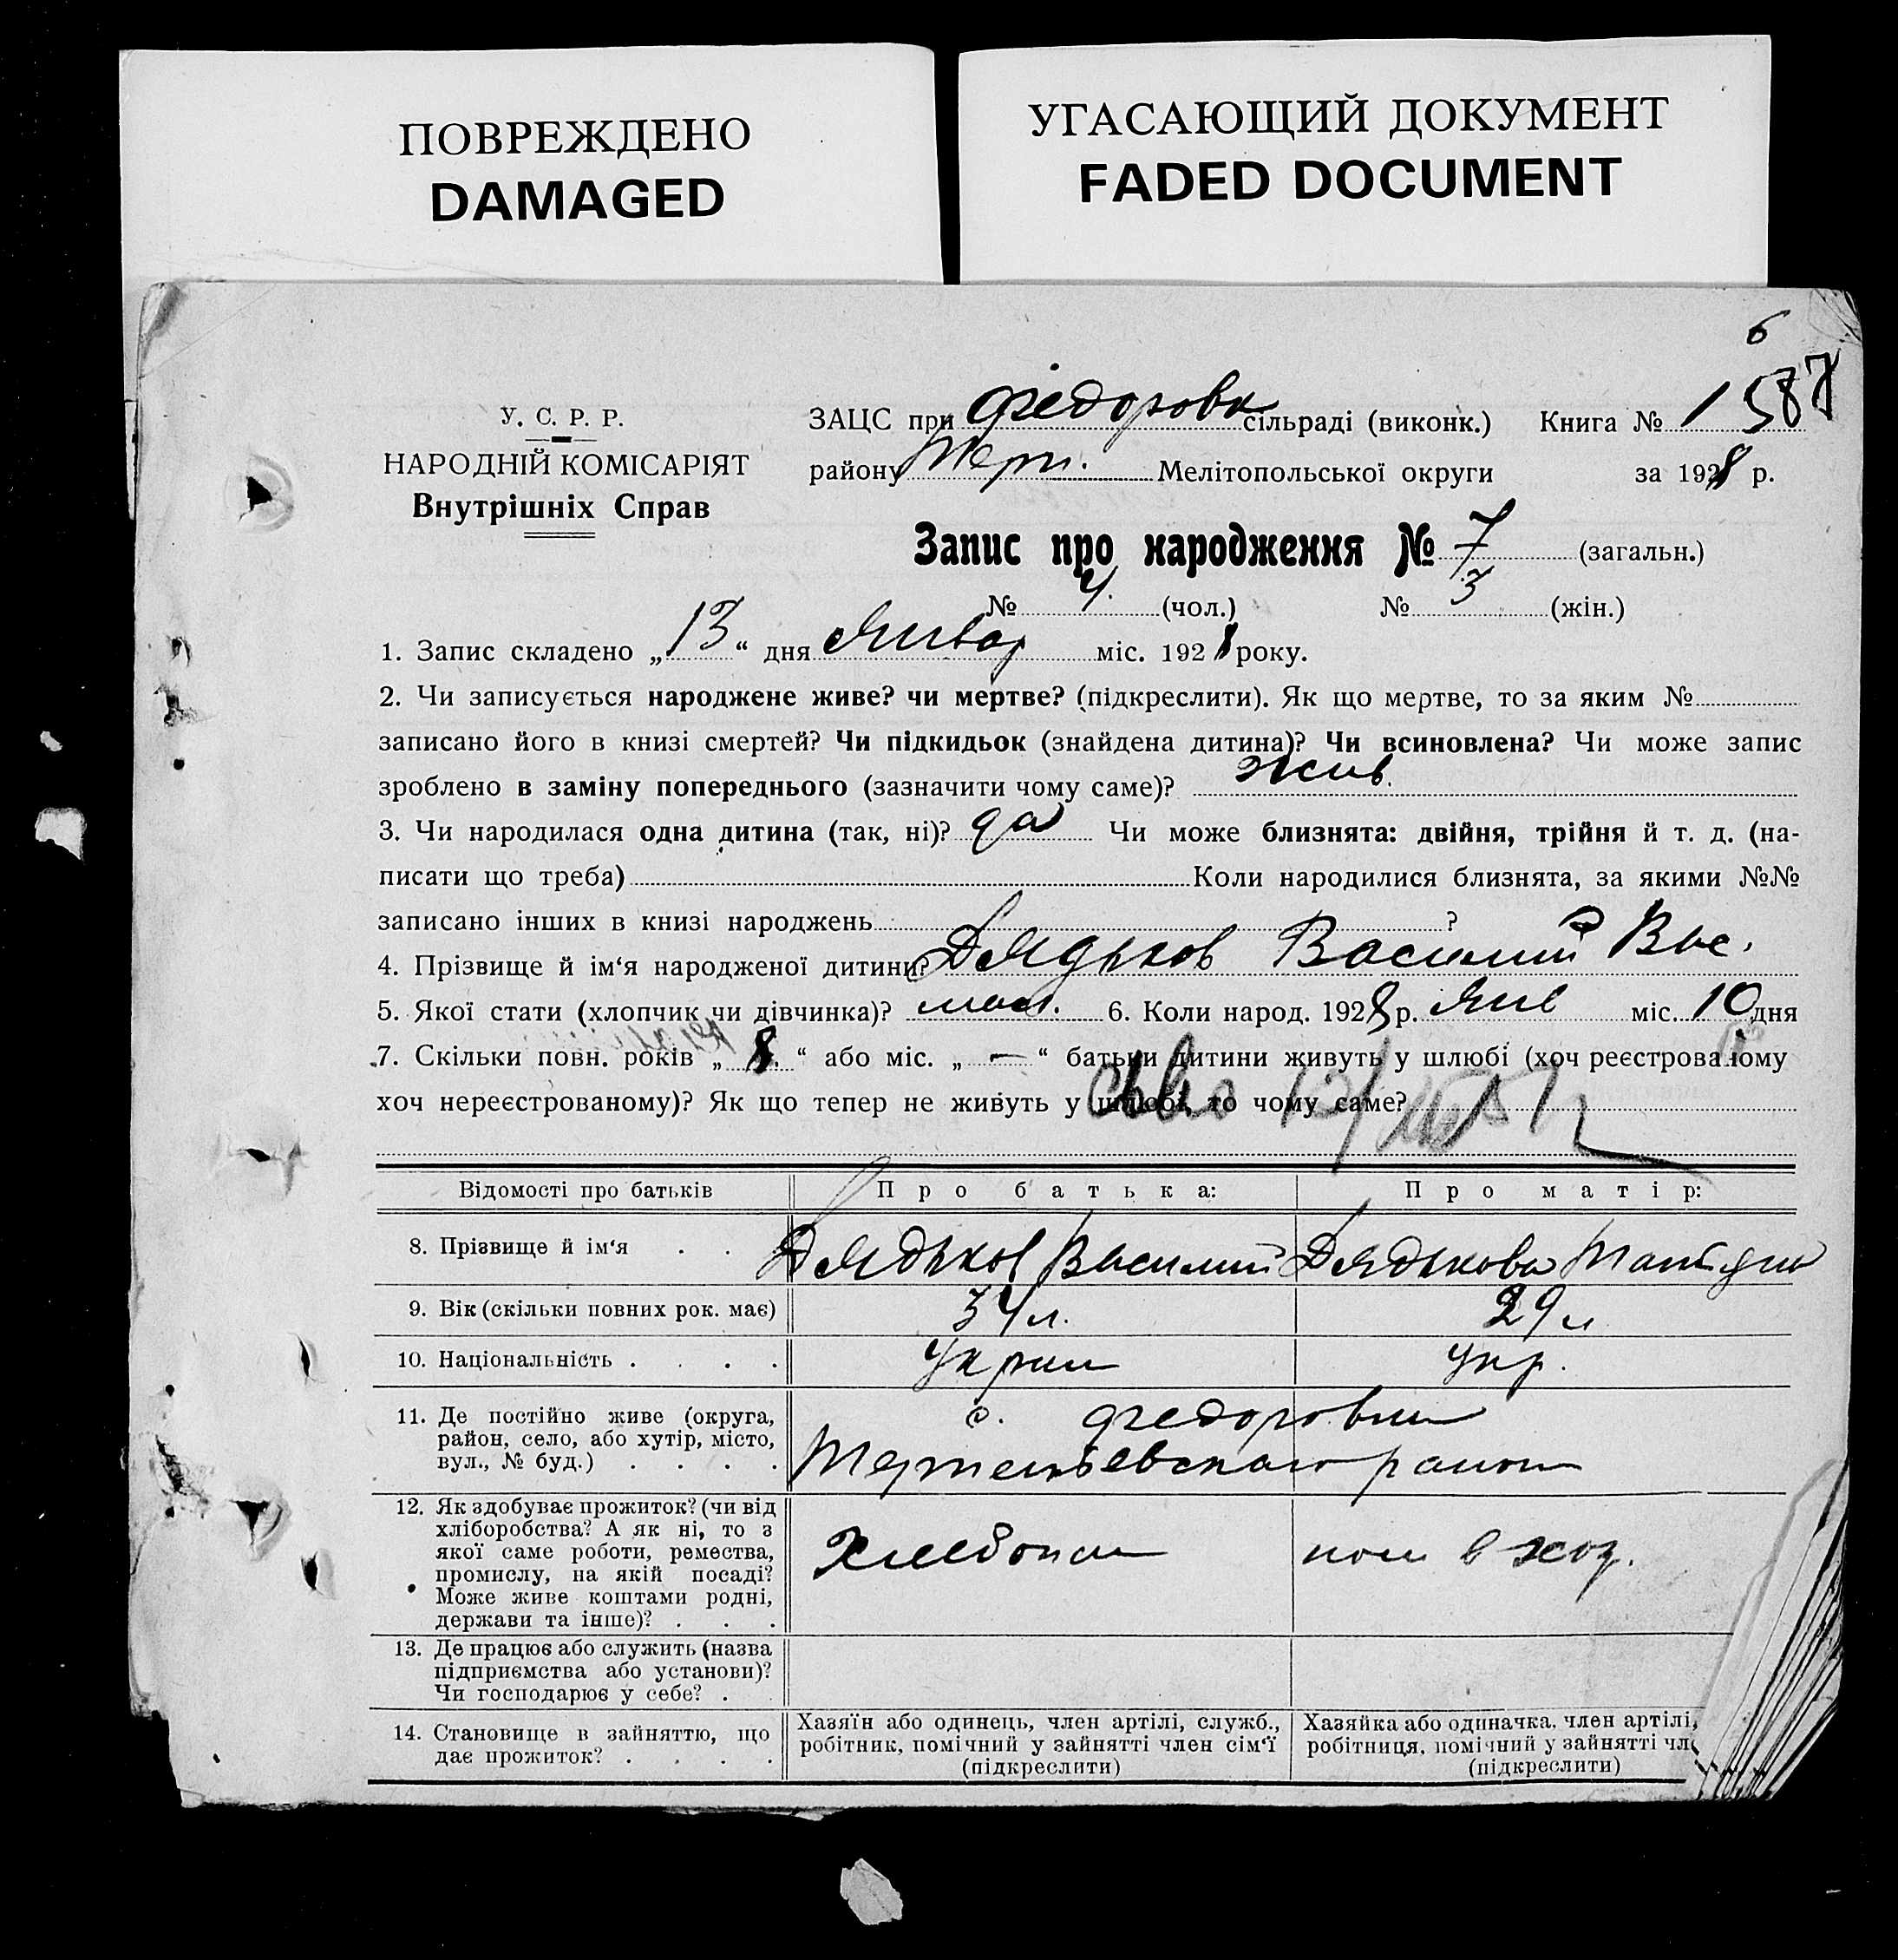 ПОВРЕЖДЕНО
DAMAGED
УГАСАЮЩИЙ ДОКУМЕНТ
FADED DOCUMENT
6
У. С. Р. Р.
НАРОДНІЙ КОМІСАРІЯТ
Внутрішніх Справ
ЗАЦС при Федоровк сільраді (виконк.) Книга № 1 587
району Терп. Мелітопольської округи за 1928 р.
Запис про народження № 7 (загальн.)
№ 4 (чол.) № 3 (жін.)
1. Запис складено „13“ дня Январ міс. 1928 року.
2. Чи записується народжене живе? чи мертве? (підкреслити). Як що мертве, то за яким №
записано його в книзі смертей? Чи підкидьок (знайдена дитина)? Чи всиновлена? Чи може запис
зроблено в заміну попереднього (зазначити чому саме)? жив.
3. Чи народилася одна дитина (так, ні)? да Чи може близнята: двійня, трійня й т. д. (на-
писати що треба) Коли народилися близнята, за якими №№
записано інших в книзі народжень ?
4. Прізвище й ім‘я народженої дитини? Дядьков Василий Вас.
5. Якої стати (хлопчик чи дівчинка)? 6. Коли народ. 1928 р. Янв міс. 10 дня
7. Скільки повн. років „8.“ або міс. „—“ батьки дитини живуть у шлюбі (хоч реєстрованому
хоч нереєстрованому)? Як що тепер не живуть у шлюбі, то чому саме?
Відомості про батьків Про батька: Про матір:
8. Прізвище й ім‘я . . . Дядьков Василий Дядькова
9. Вік (скільки повних рок. має) 34 л. 29 л
10. Національність . . . . Украин Укр.
11. Де постійно живе (округа,
район, село, або хутір, місто,
вул., № буд.) . . . .
с. Федоровки
Терпеньевскаго район
12. Як здобуває прожиток? (чи від
хліборобства? А як ні, то з
якої саме роботи, ремества,
промислу, на якій посаді?
Може живе коштами родні,
держави та інше)? . . .
Хлебопаш
пом в хоз.
13. Де працює або служить (назва
підприємства або установи)?
Чи господарює у себе? .
14. Становище в зайняттю, що
дає прожиток? . . . .
Хазяїн або одинець, член артілі, служб.,
робітник, помічний у зайнятті член сім‘ї
(підкреслити)
Хазяйка або одиначка, член артілі,
робітниця, помічний у зайнятті чл
(підкреслити)